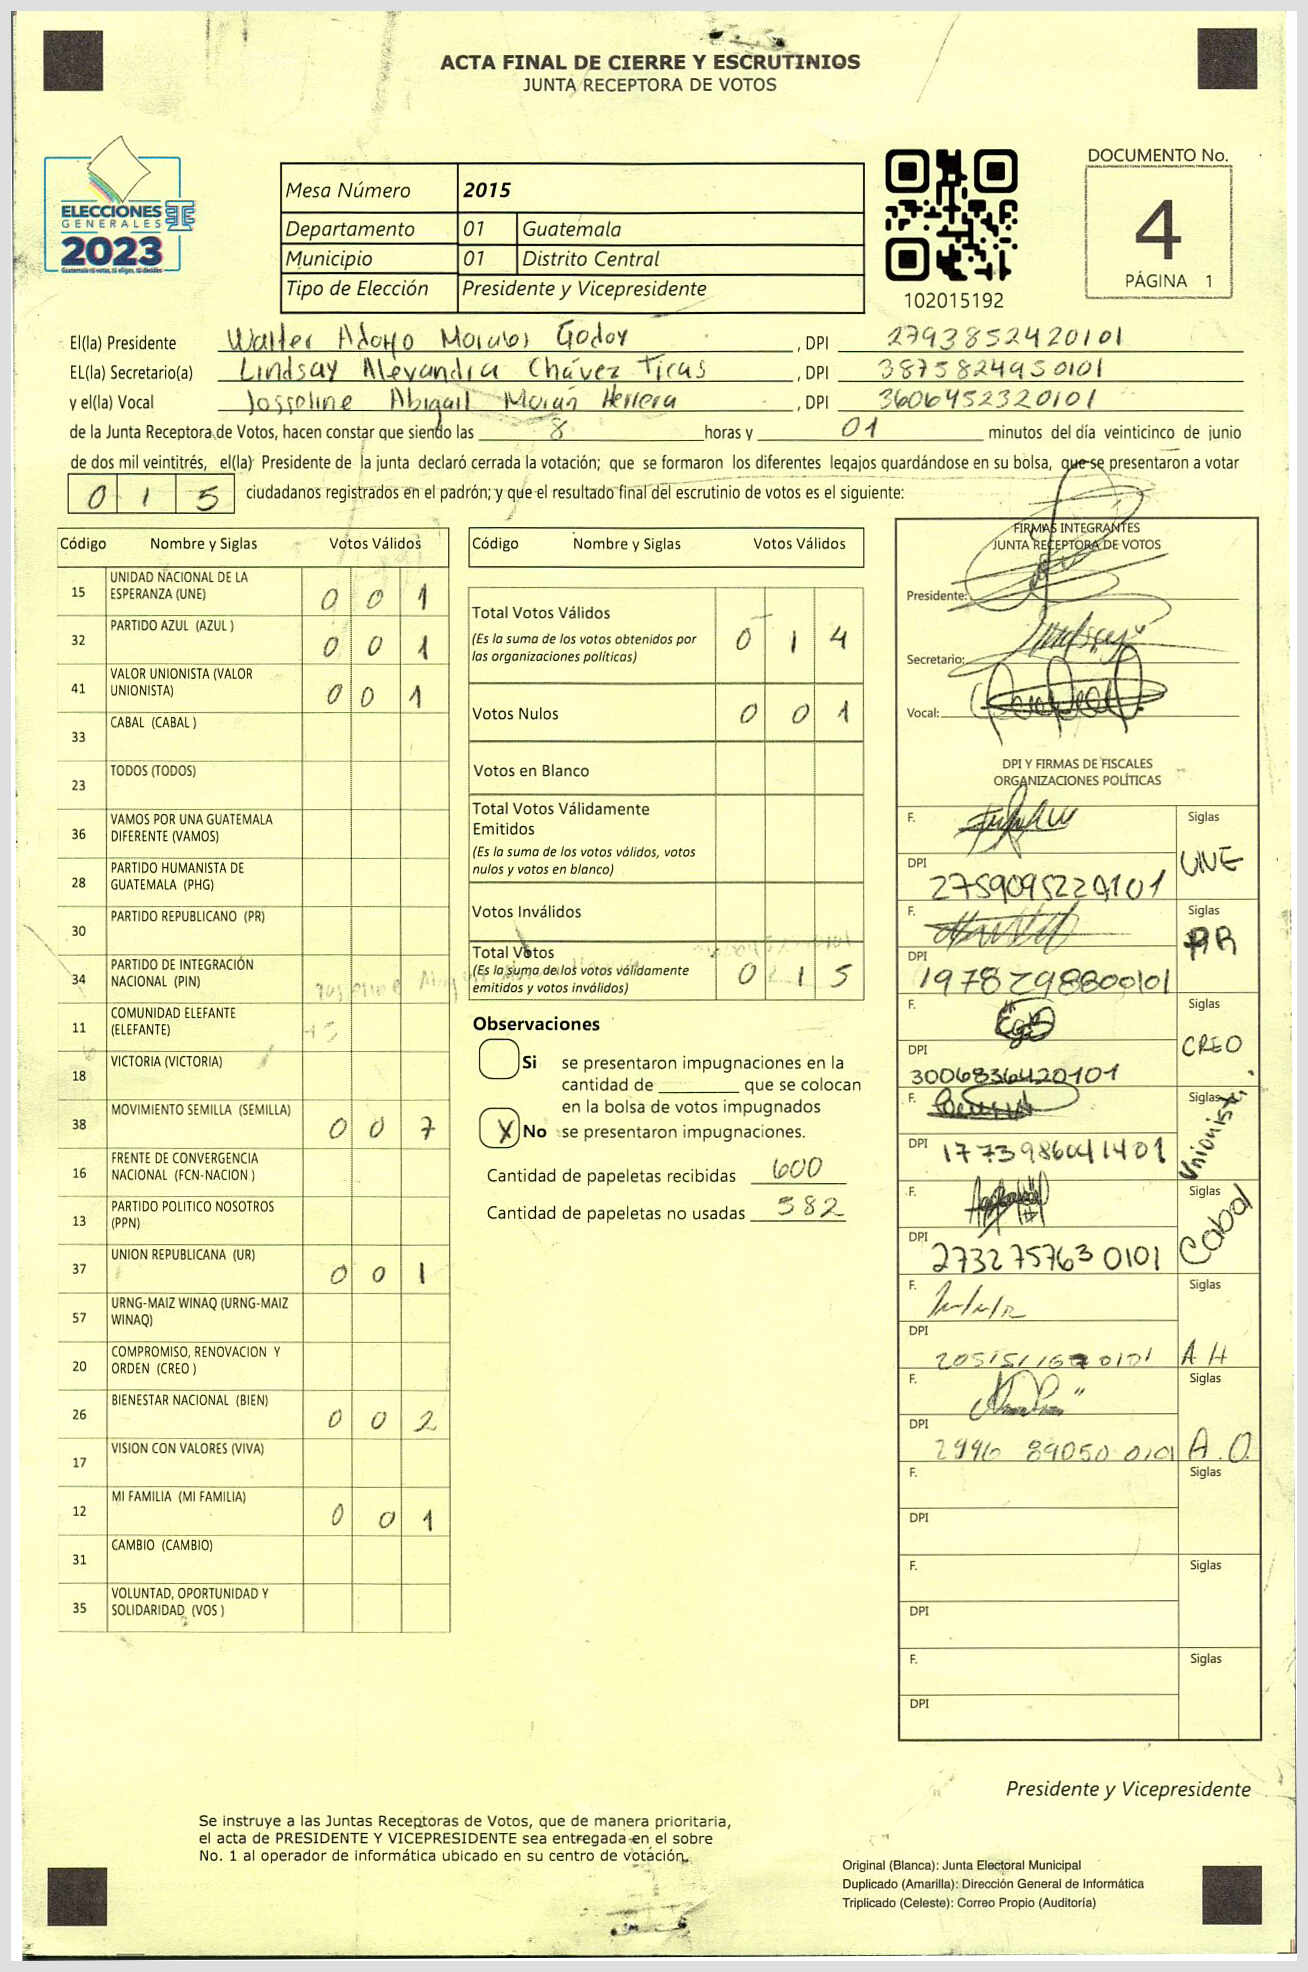 ACTA FINAL DE CIERRE Y ESCRUTINIOS
JUNTA RECEPTORA DE VOTOS
ELECCIONES
GENERALES
2023
Guatemala tú votas, tú eliges, tú decides
Mesa Número 2015
Departamento 01 Guatemala
Municipio 01 Distrito Central
Tipo de Elección Presidente y Vicepresidente
102015192
DOCUMENTO No.
4
PÁGINA 1
El(la) Presidente Walter Morales Godoy, DPI 2793852420101
EL(la) Secretario(a) Lindsay Alexandra Chávez Ticas, DPI 3875824950101
y el(la) Vocal Josseline Abigail Morán Herrera, DPI 3606452320101
de la Junta Receptora de Votos, hacen constar que siendo las 8 horas y 01 minutos del día veinticinco de junio
de dos mil veintitrés, el(la) Presidente de la junta declaró cerrada la votación; que se formaron los diferentes legajos guardándose en su bolsa, que se presentaron a votar
015 ciudadanos registrados en el padrón; y que el resultado final del escrutinio de votos es el siguiente:
Código Nombre y Siglas Votos Válidos
15 UNIDAD NACIONAL DE LA
ESPERANZA (UNE) 0 0 1
32 PARTIDO AZUL (AZUL ) 0 0 1
41 VALOR UNIONISTA (VALOR
UNIONISTA) 0 0 1
33 CABAL (CABAL )
23 TODOS (TODOS)
36 VAMOS POR UNA GUATEMALA
DIFERENTE (VAMOS)
28 PARTIDO HUMANISTA DE
GUATEMALA (PHG)
30 PARTIDO REPUBLICANO (PR)
34 PARTIDO DE INTEGRACIÓN
NACIONAL (PIN)
11 COMUNIDAD ELEFANTE
(ELEFANTE)
18 VICTORIA (VICTORIA)
38 MOVIMIENTO SEMILLA (SEMILLA) 0 0 7
16 FRENTE DE CONVERGENCIA
NACIONAL (FCN-NACION )
13 PARTIDO POLITICO NOSOTROS
(PPN)
37 UNION REPUBLICANA (UR) 0 0 1
57 URNG-MAIZ WINAQ (URNG-MAIZ
WINAQ)
20 COMPROMISO, RENOVACION Y
ORDEN (CREO )
26 BIENESTAR NACIONAL (BIEN) 0 0 2
17 VISION CON VALORES (VIVA)
12 MI FAMILIA (MI FAMILIA) 0 0 1
31 CAMBIO (CAMBIO)
35 VOLUNTAD, OPORTUNIDAD Y
SOLIDARIDAD (VOS )
Código Nombre y Siglas Votos Válidos
Total Votos Válidos
(Es la suma de los votos obtenidos por
las organizaciones políticas) 0 1 4
Votos Nulos 0 0 1
Votos en Blanco
Total Votos Válidamente
Emitidos
(Es la suma de los votos válidos, votos
nulos y votos en blanco)
Votos Inválidos
Total Votos
(Es la suma de los votos válidamente
emitidos y votos inválidos) 0 1 5
Observaciones
Si se presentaron impugnaciones en la
cantidad de ________ que se colocan
en la bolsa de votos impugnados
X No se presentaron impugnaciones.
Cantidad de papeletas recibidas 600
Cantidad de papeletas no usadas 582
FIRMAS INTEGRANTES
JUNTA RECEPTORA DE VOTOS
Presidente:
Secretario:
Vocal:
DPI Y FIRMAS DE FISCALES
ORGANIZACIONES POLÍTICAS
F. Siglas
DPI 2759095220101 UNE
F. Siglas
DPI 1978298800101 PR
F. Siglas
DPI 3006836420101 CREO
F. Siglas
DPI 1773986041401 Unionista
F. Siglas
DPI 2732757630101 Cabal
F. Siglas
DPI A H
F. Siglas
DPI 2996 89050 0101 A.O.
F. Siglas
DPI
F. Siglas
DPI
F. Siglas
DPI
Presidente y Vicepresidente
Se instruye a las Juntas Receptoras de Votos, que de manera prioritaria,
el acta de PRESIDENTE Y VICEPRESIDENTE sea entregada en el sobre
No. 1 al operador de informática ubicado en su centro de votación.
Original (Blanca): Junta Electoral Municipal
Duplicado (Amarilla): Dirección General de Informática
Triplicado (Celeste): Correo Propio (Auditoría)